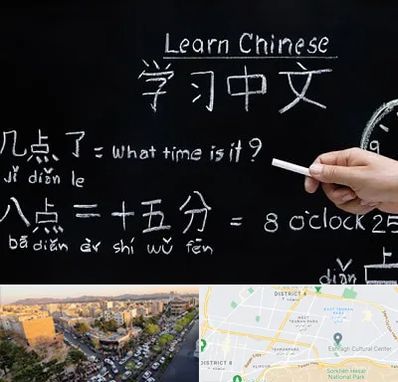 Learn Chinese
学习中文
几点了 = What time is it?
jǐ diǎn le
八点二十五分 = 8 o'clock 25
bā diǎn èr shí wǔ fēn
diǎn
上
9
DISTRICT 4
EAST TEHRAN PARS
WEST TEHRAN PARS
DISTRICT 8
Eshragh Cultural Center
Sorkheh Hesar National Park